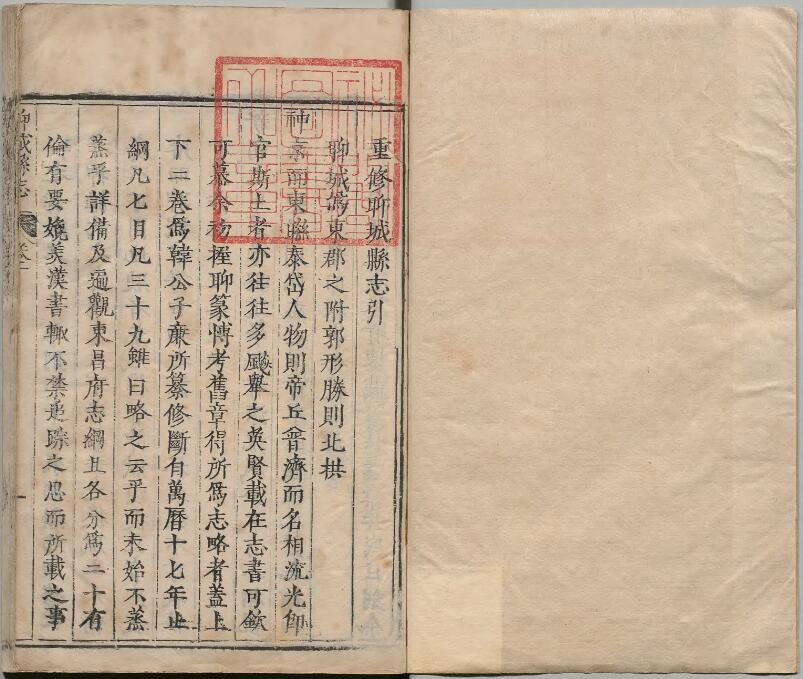 重修聊城縣志引
聊城為東郡之附郭形勝則北拱
神京而東聯泰岱人物則帝丘普濟而名相流光即
官斯土者亦往往多颷舉之英賢載在志書可欽
可慕余初握聊篆慱考舊章得所為志略者蓋上
下二卷為韓公子亷所纂修斷自萬曆十七年止
綱凡七目凡三十九雖曰略之云乎而未始不蒸
蒸乎詳備及遍觀東昌府志綱且各分為二十有
倫有要媲美漢書輙不禁追踪之思而所載之事
聊城縣志
卷一
一